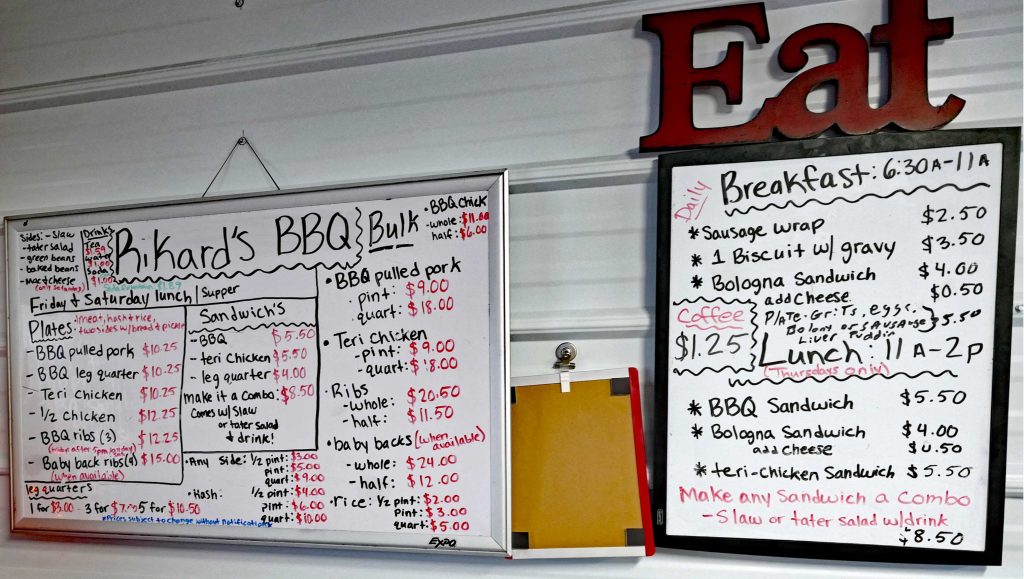 Sides: - Slaw
- tater salad
- green beans
- baked beans
- mac & cheese
(only Saturday)
Drinks
Tea
$1.59
water
$1.00
Soda
$1.00
$1.89
Rikard's BBQ
Friday & Saturday lunch / Supper
Plates: 1 meat, hash & rice,
two sides w/ bread & pickle
- BBQ pulled pork $10.25
- BBQ leg quarter $10.25
- Teri Chicken $10.25
- 1/2 Chicken $12.25
- BBQ ribs (3) $12.25
- Baby back ribs (4) $15.00
(when available)
leg quarters
1 for $3.00 - 3 for 5 for $10.50
*Prices subject to change without notification*
Sandwich's
- BBQ $5.50
- teri chicken $5.50
- leg quarter $4.00
make it a Combo: $8.50
Comes w/ Slaw
or tater Salad
& drink!
• Any Side: 1/2 pint: $3.00
pint: $5.00
quart: $9.00
• Hash: 1/2 pint: $4.00
pint: $6.00
quart: $10.00
Bulk
• BBQ Chick
- whole: $11.00
half: $6.00
• BBQ pulled pork
• pint: $9.00
• quart: $18.00
• Teri Chicken
- pint: $9.00
- quart: $18.00
• Ribs
- whole: $20.50
- half: $11.50
• baby backs (when available)
- whole: $24.00
- half: $12.00
• Rice: 1/2 pint: $2.00
pint: $3.00
quart: $5.00
EXPO
Eat
Daily
Breakfast: 6:30A-11A
* Sausage wrap $2.50
* 1 Biscuit w/ gravy $3.50
* Bologna Sandwich $4.00
add cheese $0.50
Plate-Grits, eggs,
Bolony or Sausage $5.50
Liver Puddin
Coffee
$1.25
Lunch: 11A-2P
(Thursdays only)
* BBQ Sandwich $5.50
* Bologna Sandwich $4.00
add cheese $0.50
* teri-chicken Sandwich $5.50
Make any Sandwich a combo
- Slaw or tater salad w/drink
$8.50